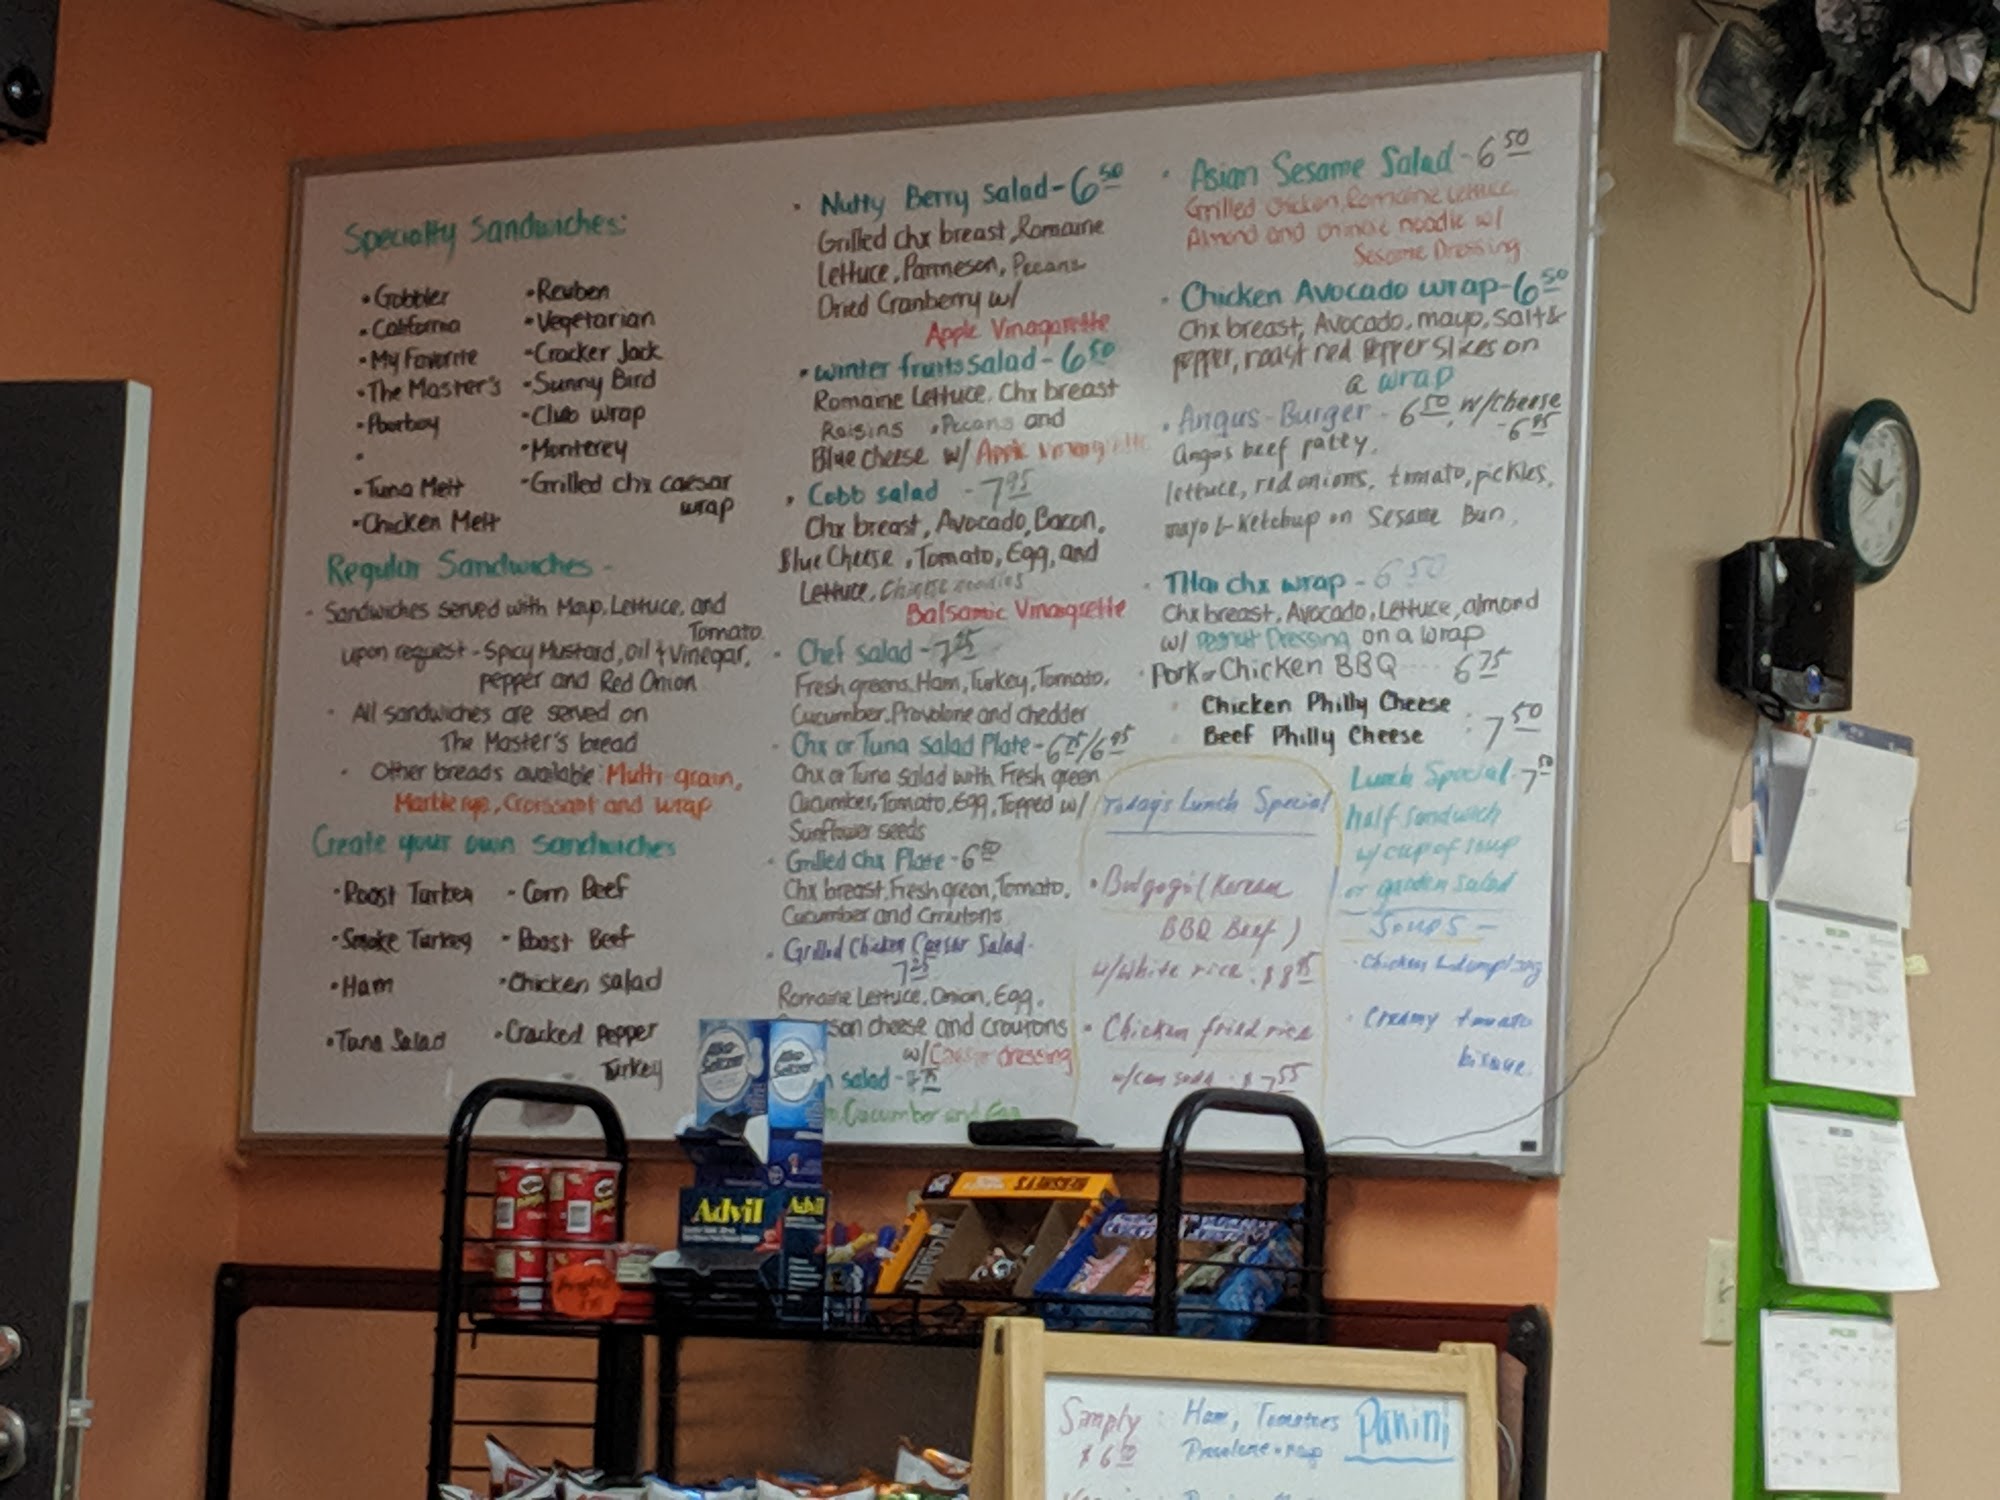 Specialty Sandwiches:
• Gobbler
• California
• My Favorite
• The Master's
• Poorboy
•
• Tuna Melt
• Chicken Melt
• Reuben
• Vegetarian
• Cracker Jack
• Sunny Bird
• Club wrap
• Monterey
• Grilled chx caesar
wrap
Regular Sandwiches -
• Sandwiches served with Mayo, Lettuce, and
Tomato.
upon request - Spicy Mustard, oil & Vinegar,
pepper and Red Onion
• All sandwiches are served on
The Master's bread
• Other breads available: Multi grain,
Marble rye, Croissant and wrap
Create your own sandwiches
• Roast Turkey
• Smoke Turkey
• Ham
• Tuna Salad
• Corn Beef
• Roast Beef
• Chicken salad
• Cracked Pepper
Turkey
• Nutty Berry salad - 6 50
Grilled chx breast, Romaine
Lettuce, Parmeson, Pecans
Dried Cranberry w/
Apple Vinagarette
• winter fruits salad - 6 50
Romaine Lettuce, Chx breast
Raisins, Pecans and
Blue cheese w/ Apple
• Cobb salad - 7 95
Chx breast, Avocado, Bacon,
Blue Cheese, Tomato, Egg, and
Lettuce, Chinese noodles
Balsamic Vinaigrette
• Chef salad - 7 25
Fresh greens, Ham, Turkey, Tomato,
Cucumber, Provolone and chedder
• Chx or Tuna salad Plate - 6 75/6 95
Chx or Tuna salad with Fresh green
Cucumber, Tomato, Egg, Topped w/
Sunflower seeds
• Grilled chx Plate - 6 50
Chx breast, Fresh green, Tomato,
Cucumber and Croutons
• Grilled Chicken Caesar Salad -
7 25
Romaine Lettuce, Onion, Egg,
san cheese and croutons
w/ Caesar dressing
salad - 75
Cucumber and Egg
• Asian Sesame Salad - 6 50
Grilled chicken, Romaine Lettuce
Almond and chinese noodle w/
Sesame Dressing
• Chicken Avocado wrap - 6 50
Chx breast, Avocado, mayo, salt &
pepper, roast red pepper slices on
a wrap
• Angus-Burger - 6 50, w/cheese
- 6 95
Angus beef patty,
lettuce, red onions, tomato, pickles,
mayo & ketchup on Sesame Bun,
• Thai chx wrap - 6 50
Chx breast, Avocado, Lettuce, almond
w/ peanut Dressing on a wrap
• Pork or Chicken BBQ 6 75
• Chicken Philly Cheese
• Beef Philly Cheese : 7 50
Today's Lunch Special
• Bulgogi (Korean
BBQ Beef)
w/White rice. $8 95
• Chicken fried rice
w/can soda $7 55
Lunch Special 7 50
half sandwich
w/ cup of soup
or garden salad
Soups -
• Chicken & dumpling
• Creamy tomato
bisque.
Alka-Seltzer
Alka-Seltzer
Advil
Advil
HERSHEY'S
Simply : Ham, Tomatoes
$6 50 Provolone
Panini